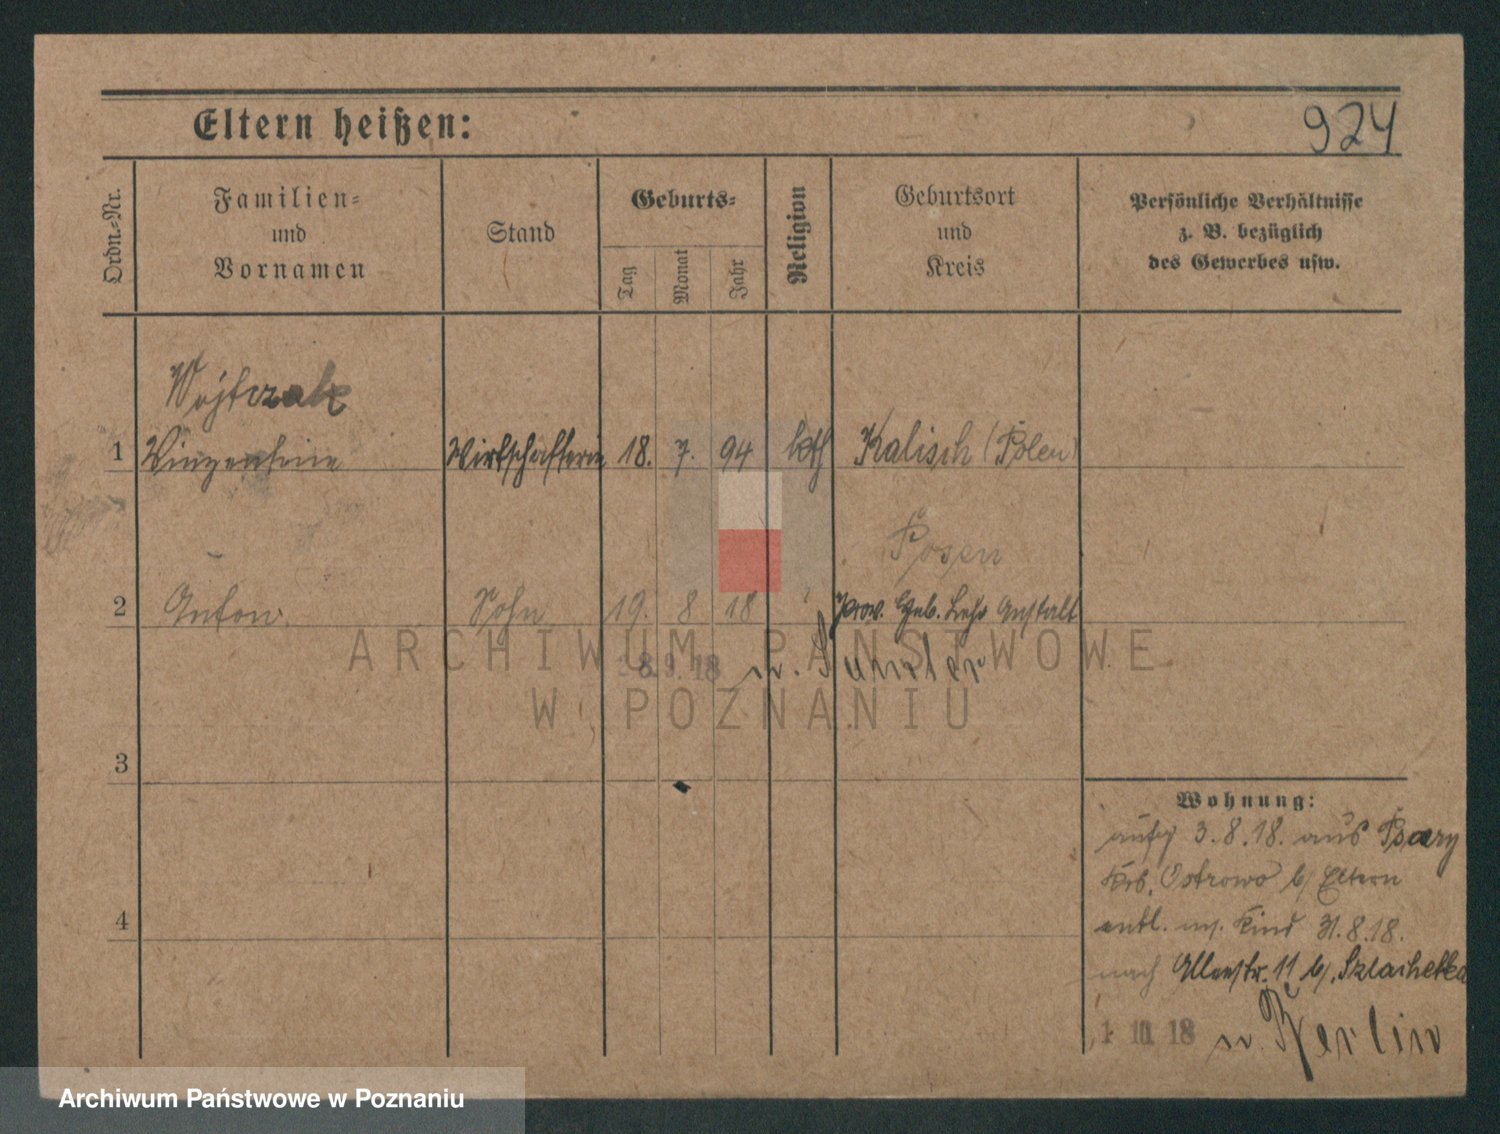 Eltern heißen:
924
Ordn.-Nr.
Familien-
und
Vornamen
Stand
Geburts-
Tag
Monat
Jahr
Religion
Geburtsort
und
Kreis
Persönliche Verhältnisse
z. B. bezüglich
des Gewerbes usw.
Wojtczak
1 Vinzentine Wirtschafterin 18. 7. 94 kth Kalisch (Polen)
Posen
2 Anton Sohn 19. 8 18 Prov. Heb. Lehr Anstalt
9. 18 n.
3
Wohnung:
3.8.18. aus Psary
Ostrowo b/ Eltern
entl. m. Kind 31.8.18.
4
nach 11 b/. Szlachetka
18 n. Berlin
ARCHIWUM PAŃSTWOWE
W POZNANIU
Archiwum Państwowe w Poznaniu